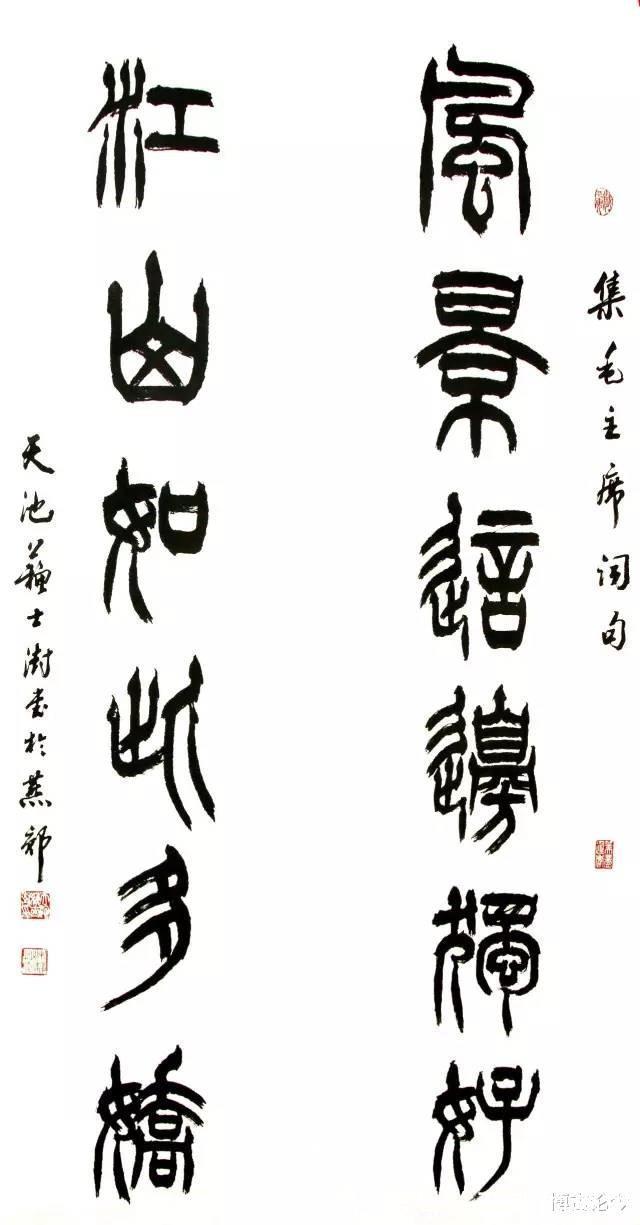 集毛主席词句
風景這邊獨好
江山如此多嬌
天池蘇士澍書於燕郊
博古论今